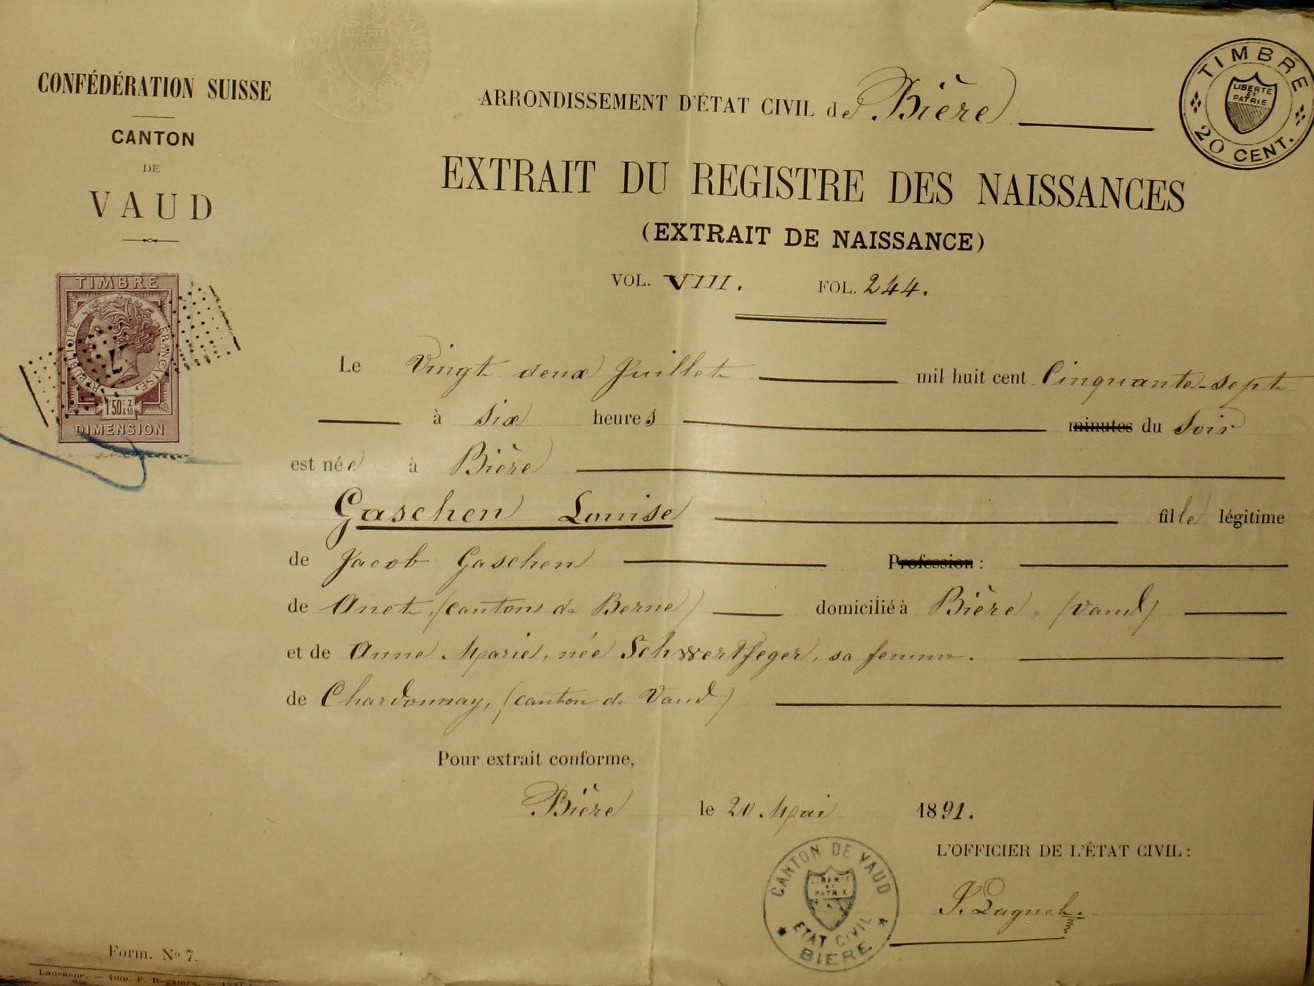 CONFÉDÉRATION SUISSE
CANTON
DE
VAUD
LIBERTÉ ET PATRIE
ARRONDISSEMENT D'ÉTAT CIVIL de Bière
TIMBRE
LIBERTÉ
ET
PATRIE
20 CENT.
EXTRAIT DU REGISTRE DES NAISSANCES
(EXTRAIT DE NAISSANCE)
VOL. VIII. FOL. 244.
TIMBRE
RÉPUBLIQUE FRANÇAISE
1F50c 2/10
DIMENSION
Le Vingt deux Juillet mil huit cent Cinquante-sept
à six heures minutes du Soir
est née à Bière
Gaschen Louise fille légitime
de Jacob Gaschen Profession :
de Anet, (cantons de Berne) domicilié à Bière, (Vaud)
et de Anne Marie, née Schwertfeger, sa femme.
de Chardonnay, (canton de Vaud)
Pour extrait conforme,
Bière le 20 Mai 1891.
L'OFFICIER DE L'ÉTAT CIVIL :
CANTON DE VAUD
LIBERTÉ
ET
PATRIE
ETAT CIVIL
BIÈRE
Form. No 7.
Lausanne. — Imp. F. Regamey.